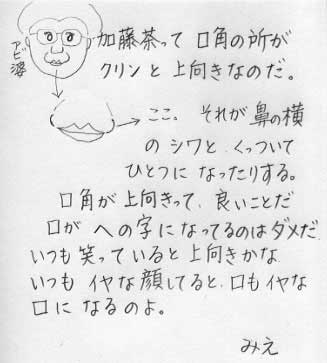 アビ婆
加藤茶って 口角の所が
クリンと 上向きなのだ。
ここ。 それが 鼻の横
の シワと くっついて
ひとつに なったりする。
口角が 上向きって、良いことだ
口が への字に なってるのは ダメだ
いつも 笑っていると 上向きかな
いつも イヤな 顔してると、口も イヤな
口に なるのよ。
みえ